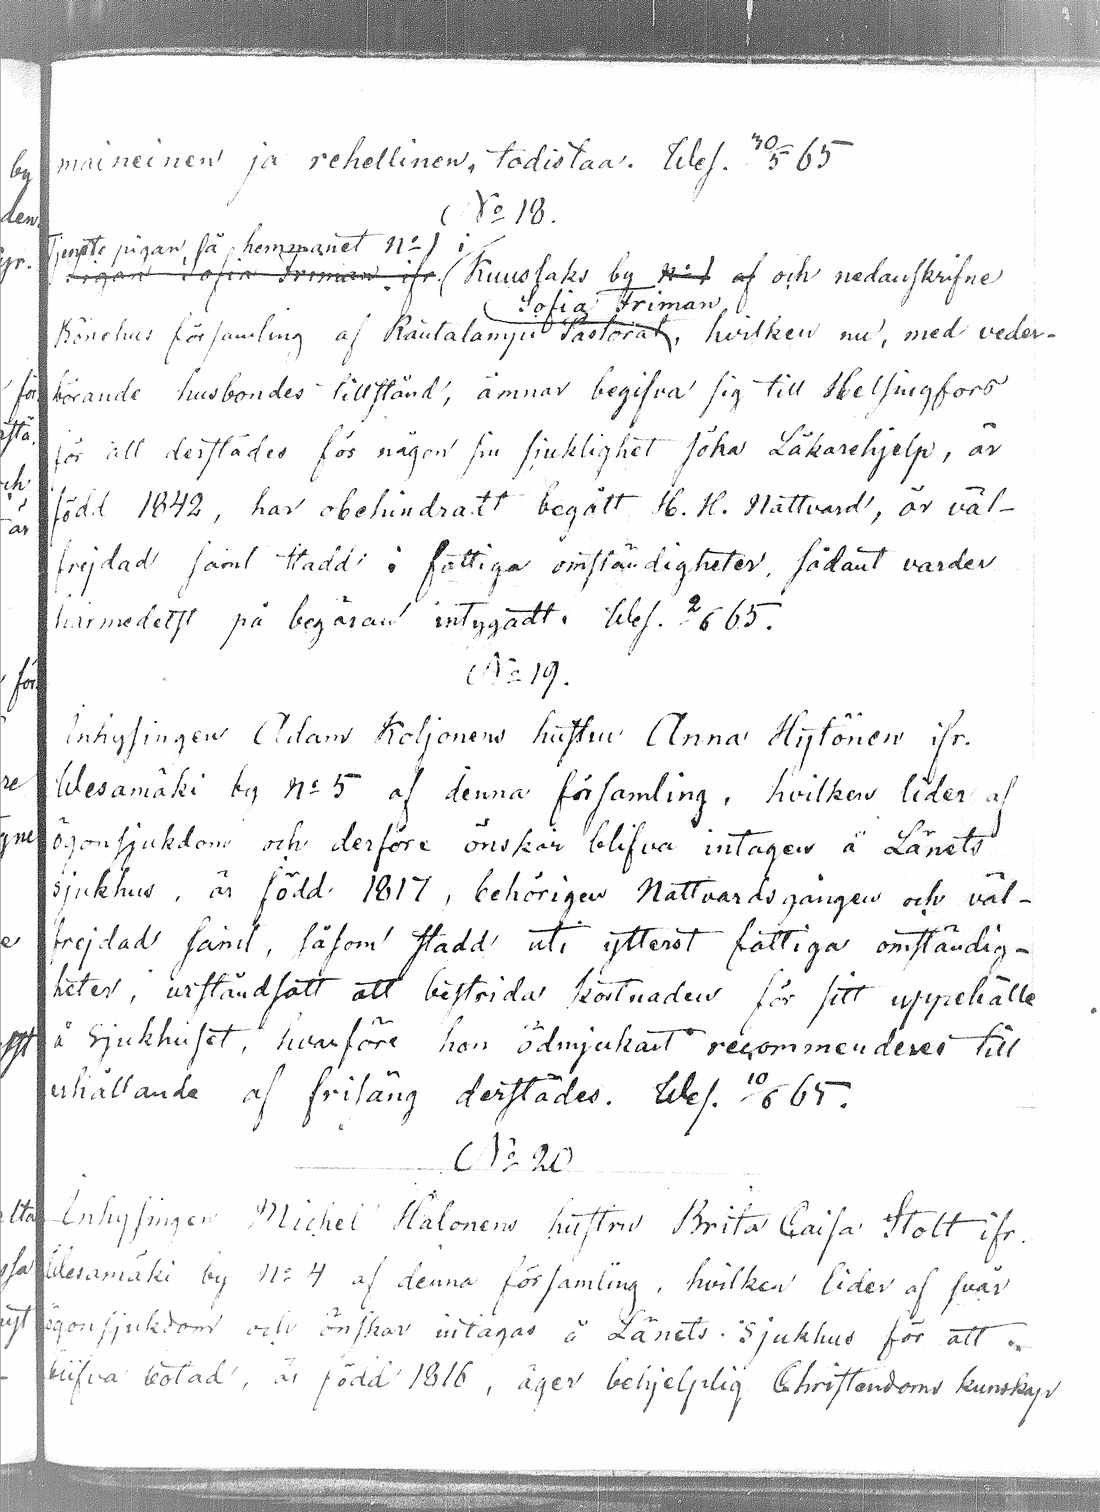 maineinen ja rehellinen, todistaa. Wes. 30/5 65
No 18.
Tjenste pigan på hemmanet No 1 i
Pigan Sofia Friman ifr. Kuuslaks by No 1 af och nedanskrifne
Sofia Friman
Könehus församling af Rautalampi Pastorat, hvilken nu, med veder-
börande husbondes tillstånd, ämnar begifva sig till Helsingfors
för att derstädes för någon sin sjuklighet söka Läkarehjelp, är
född 1842, har obehindradt begått H. H. Nattvard, är väl-
frejdad samt stadd i fattiga omständigheter, sådant varder
härmedelst på begäran intygadt. Wes. 2/6 65.
No 19.
Inhysingen Adam Koljonens hustru Anna Hytönen ifr.
Wesamäki by No 5 af denna församling, hvilken lider af
ögonsjukdom och derföre önskar blifva intagen å Länets
Sjukhus, är född 1817, behörigen Nattvardsgången och väl-
frejdad samt, såsom stadd uti ytterst fattiga omständig-
heter, urståndsatt att bestrida kostnaden för sitt uppehälle
å Sjukhuset, hvarföre hon ödmjukast recommenderes till
erhållande af frisäng derstädes. Wes. 10/6 65.
No 20
Inhysingen Michel Halonens hustru Brita Caisa Stolt ifr.
Wesamäki by No 4 af denna församling, hvilken lider af svår
ögonsjukdom och önskar intagas å Länets Sjukhus för att
blifva botad, är född 1816, äger behjelplig Christendoms kunskap